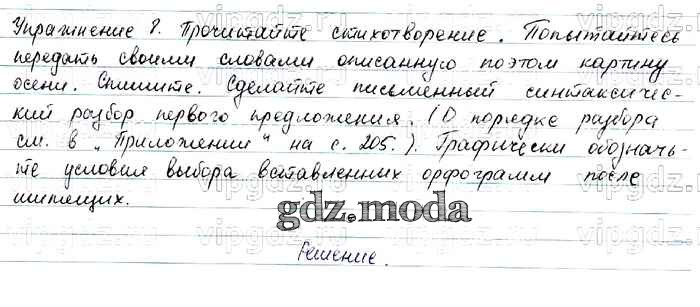 Упражнение 8. Прочитайте стихотворение. Попытайтесь
передать своими словами описанную поэтом картину
осени. Спишите. Сделайте письменный синтаксичес-
кий разбор первого предложения. (О порядке разбора
см. в „Приложении" на с. 205.). Графически обозначь-
те условия выбора вставленных орфограмм после
шипящих.
gdz.moda
Решение.